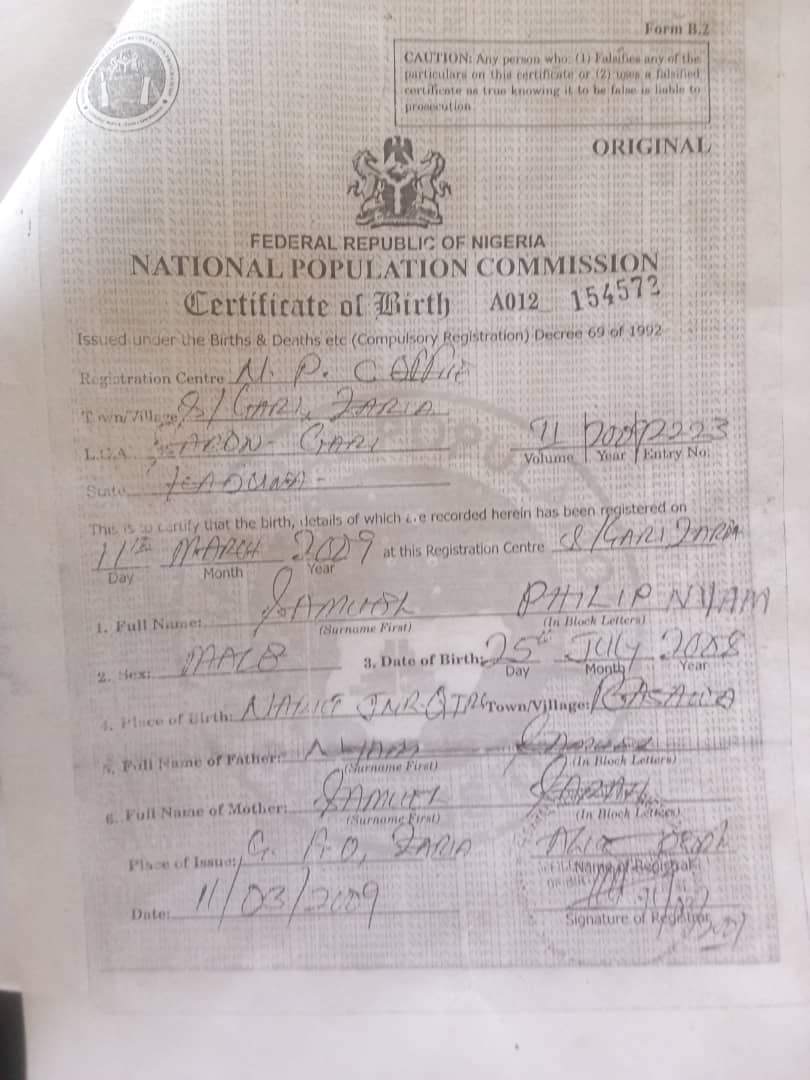 Form B.2
CAUTION: Any person who: (1) Falsifies any of the
particulars on this certificate or (2) uses a falsified
certificate as true knowing it to be false is liable to
prosecution
ORIGINAL
FEDERAL REPUBLIC OF NIGERIA
NATIONAL POPULATION COMMISSION
Certificate of Birth A012 154573
Issued under the Births & Deaths etc (Compulsory Registration) Decree 69 of 1992
Registration Centre N. P. C Office
Town/Village S/GARI, ZARIA
L.G.A. SABON-GARI
Volume Year Entry No:
State KADUNA-
This is to certify that the birth, details of which are recorded herein has been registered on
11th MARCH 2009 at this Registration Centre S/GARI ZARIA
Day Month Year
1. Full Name: SAMUEL PHILIP NYAM
(Surname First) (In Block Letters)
2. Sex: MALE 3. Date of Birth: 25th JULY 2008
Day Month Year
4. Place of Birth: Town/Village:
5. Full Name of Father: NYAM SAMUEL
(Surname First) (In Block Letters)
6. Full Name of Mother: SAMUEL SARAH
(Surname First) (In Block Letters)
Place of Issue: ZARIA
Name of Registrar
Date: 11/03/2009
Signature of Registrar